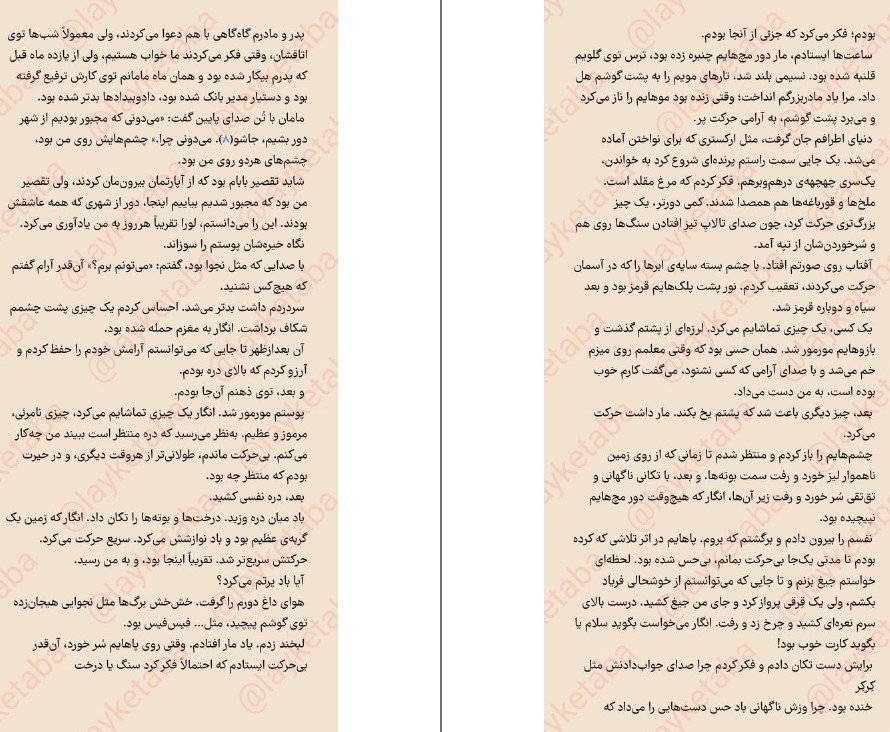 پدر و مادرم گاه‌گاهی با هم دعوا می‌کردند، ولی معمولاً شب‌ها توی
اتاقشان، وقتی فکر می‌کردند ما خواب هستیم، ولی از یازده ماه قبل
که پدرم بیکار شده بود و همان ماه مامانم توی کارش ترفیع گرفته
بود و دستیار مدیر بانک شده بود، دادوبیدادها بدتر شده بود.
مامان با تُن صدای پایین گفت: «می‌دونی که مجبور بودیم از شهر
دور بشیم، جاشو(۸). می‌دونی چرا.» چشم‌هایش روی من بود،
چشم‌های هردو روی من بود.
شاید تقصیر بابام بود که از آپارتمان بیرون‌مان کردند، ولی تقصیر
من بود که مجبور شدیم بیاییم اینجا، دور از شهری که همه عاشقش
بودند. این را می‌دانستم، لورا تقریباً هرروز به من یادآوری می‌کرد.
نگاه خیره‌شان پوستم را سوزاند.
با صدایی که مثل نجوا بود، گفتم: «می‌تونم برم؟» آن‌قدر آرام گفتم
که هیچ‌کس نشنید.
سردردم داشت بدتر می‌شد. احساس کردم یک چیزی پشت چشمم
شکاف برداشت. انگار به مغزم حمله شده بود.
آن بعدازظهر تا جایی که می‌توانستم آرامش خودم را حفظ کردم و
آرزو کردم که بالای دره بودم.
و بعد، توی ذهنم آن‌جا بودم.
پوستم مورمور شد. انگار یک چیزی تماشایم می‌کرد، چیزی نامرئی،
مرموز و عظیم. به‌نظر می‌رسید که دره منتظر است ببیند من چه‌کار
می‌کنم. بی‌حرکت ماندم، طولانی‌تر از هروقت دیگری، و در حیرت
بودم که منتظر چه بود.
بعد، دره نفسی کشید.
باد میان دره وزید. درخت‌ها و بوته‌ها را تکان داد. انگار که زمین یک
گربه‌ی عظیم بود و باد نوازشش می‌کرد. سریع حرکت می‌کرد.
حرکتش سریع‌تر شد. تقریباً اینجا بود، و به من رسید.
آیا باد پرتم می‌کرد؟
هوای داغ دورم را گرفت. خش‌خش برگ‌ها مثل نجوایی هیجان‌زده
توی گوشم پیچید، مثل... فیس‌فیس بود.
لبخند زدم. یاد مار افتادم. وقتی روی پاهایم سُر خورد، آن‌قدر
بی‌حرکت ایستادم که احتمالاً فکر کرد سنگ یا درخت
بودم؛ فکر می‌کرد که جزئی از آنجا بودم.
ساعت‌ها ایستادم، مار دور مچ‌هایم چنبره زده بود، ترس توی گلویم
قلنبه شده بود. نسیمی بلند شد، تارهای مویم را به پشت گوشم هل
داد. مرا یاد مادربزرگم انداخت؛ وقتی زنده بود موهایم را ناز می‌کرد
و می‌برد پشت گوشم، به آرامی حرکت پر.
دنیای اطرافم جان گرفت، مثل ارکستری که برای نواختن آماده
می‌شد. یک جایی سمت راستم پرنده‌ای شروع کرد به خواندن،
یک‌سری چهچهه‌ی درهم‌وبرهم. فکر کردم که مرغ مقلد است.
ملخ‌ها و قورباغه‌ها هم همصدا شدند. کمی دورتر، یک چیز
بزرگ‌تری حرکت کرد، چون صدای تالاپ تیز افتادن سنگ‌ها روی هم
و سُرخوردن‌شان از تپه آمد.
آفتاب روی صورتم افتاد. با چشم بسته سایه‌ی ابرها را که در آسمان
حرکت می‌کردند، تعقیب کردم. نور پشت پلک‌هایم قرمز بود و بعد
سیاه و دوباره قرمز شد.
یک کسی، یک چیزی تماشایم می‌کرد. لرزه‌ای از پشتم گذشت و
بازوهایم مورمور شد. همان حسی بود که وقتی معلمم روی میزم
خم می‌شد و با صدای آرامی که کسی نشنود، می‌گفت کارم خوب
بوده است، به من دست می‌داد.
بعد، چیز دیگری باعث شد که پشتم یخ بکند. مار داشت حرکت
می‌کرد.
چشم‌هایم را باز کردم و منتظر شدم تا زمانی که از روی زمین
ناهموار لیز خورد و رفت سمت بوته‌ها. و بعد، با تکانی ناگهانی و
تق‌تقی سُر خورد و رفت زیر آن‌ها، انگار که هیچ‌وقت دور مچ‌هایم
نپیچیده بود.
نفسم را بیرون دادم و برگشتم که بروم. پاهایم در اثر تلاشی که کرده
بودم تا مدتی یک‌جا بی‌حرکت بمانم، بی‌حس شده بود. لحظه‌ای
خواستم جیغ بزنم و تا جایی که می‌توانستم از خوشحالی فریاد
بکشم، ولی یک قِرقی پرواز کرد و جای من جیغ کشید. درست بالای
سرم نعره‌ای کشید و چرخ زد و رفت. انگار می‌خواست بگوید سلام یا
بگوید کارت خوب بود!
برایش دست تکان دادم و فکر کردم چرا صدای جواب‌دادنش مثل
کِرکِر
خنده بود. چرا وزش ناگهانی باد حس دست‌هایی را می‌داد که
@layketaba